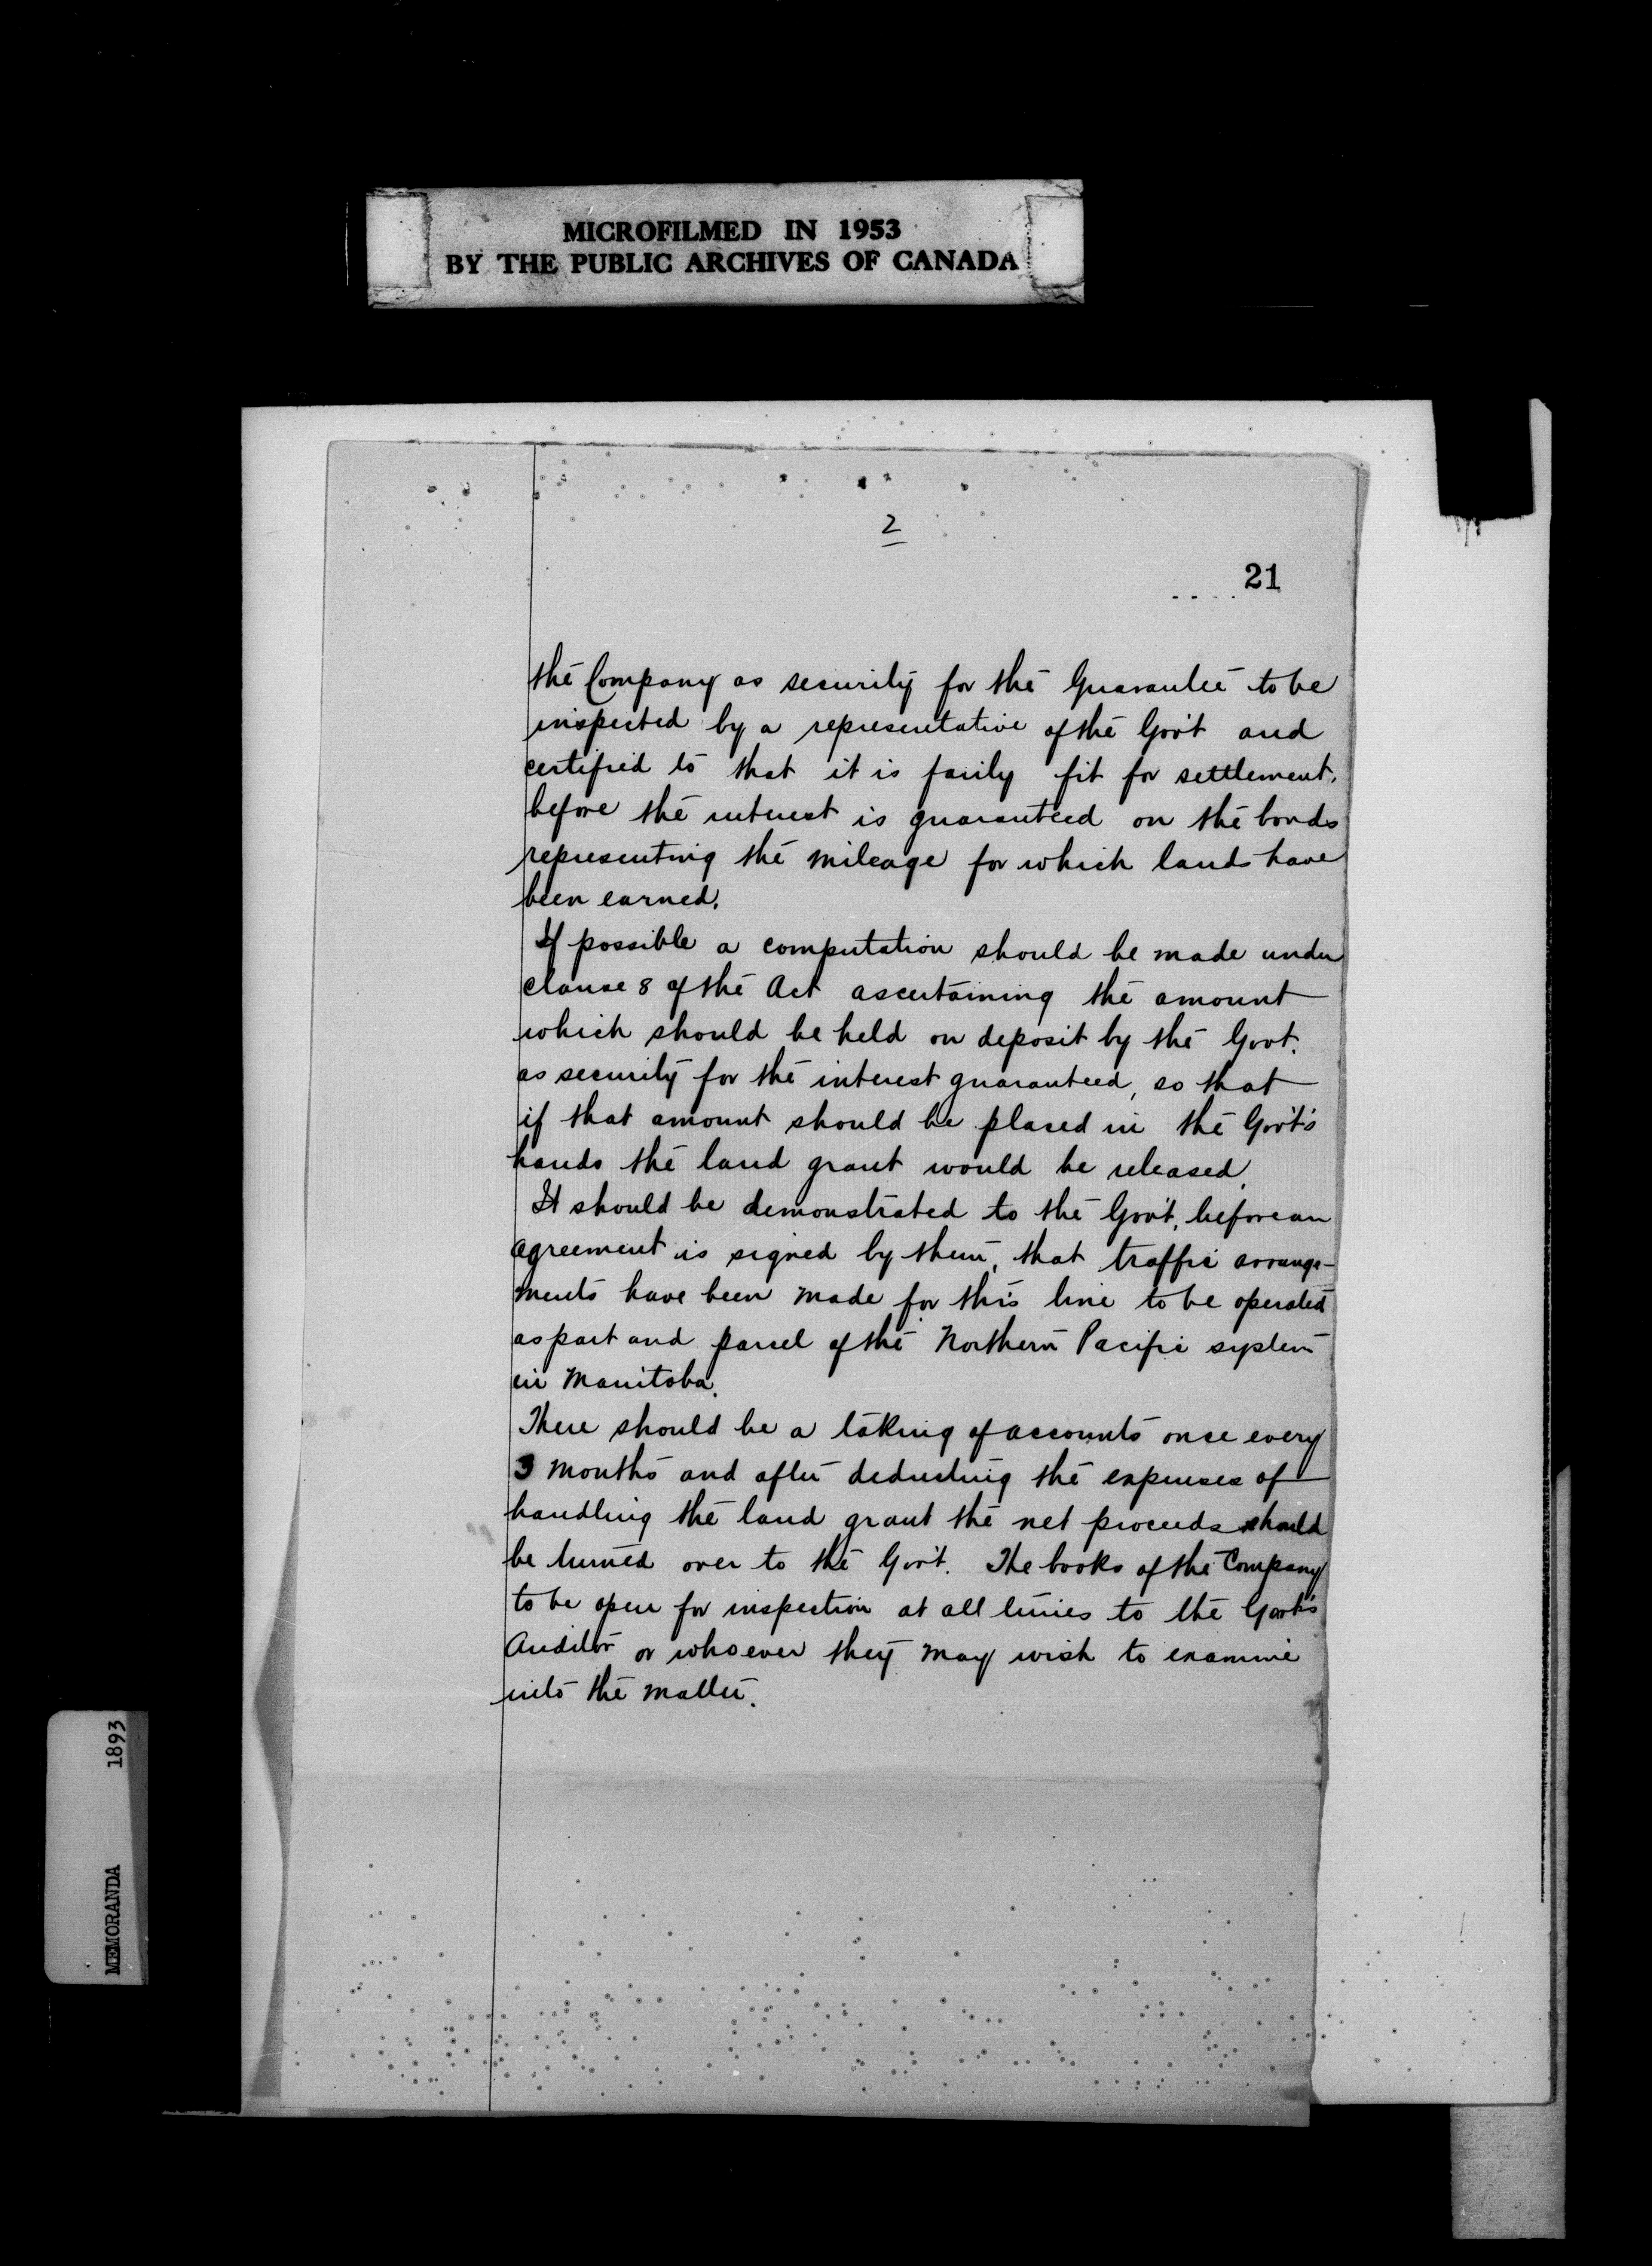 MICROFILMED IN 1953
BY THE PUBLIC ARCHIVES OF CANADA
2
21
the Company as security for the Guarantee to be
inspected by a representative of the Gov't and
certified to that it is fairly fit for settlement,
before the interest is guaranteed on the bonds
representing the mileage for which lands have
been earned.
If possible a computation should be made under
clause 8 of the Act ascertaining the amount
which should be held on deposit by the Govt.
as security for the interest guaranteed, so that
if that amount should be placed in the Gov't's
hands the land grant would be released.
It should be demonstrated to the Gov't, before an
agreement is signed by them, that traffic arrange-
ments have been made for this line to be operated
as part and parcel of the Northern Pacific system
in Manitoba.
There should be a taking of accounts once every
3 months and after deducting the expenses of
handling the land grant the net proceeds should
be turned over to the Gov't. The books of the Company
to be open for inspection at all times to the Govt's
Auditor or whoever they may wish to examine
into the matter.
MEMORANDA 1893